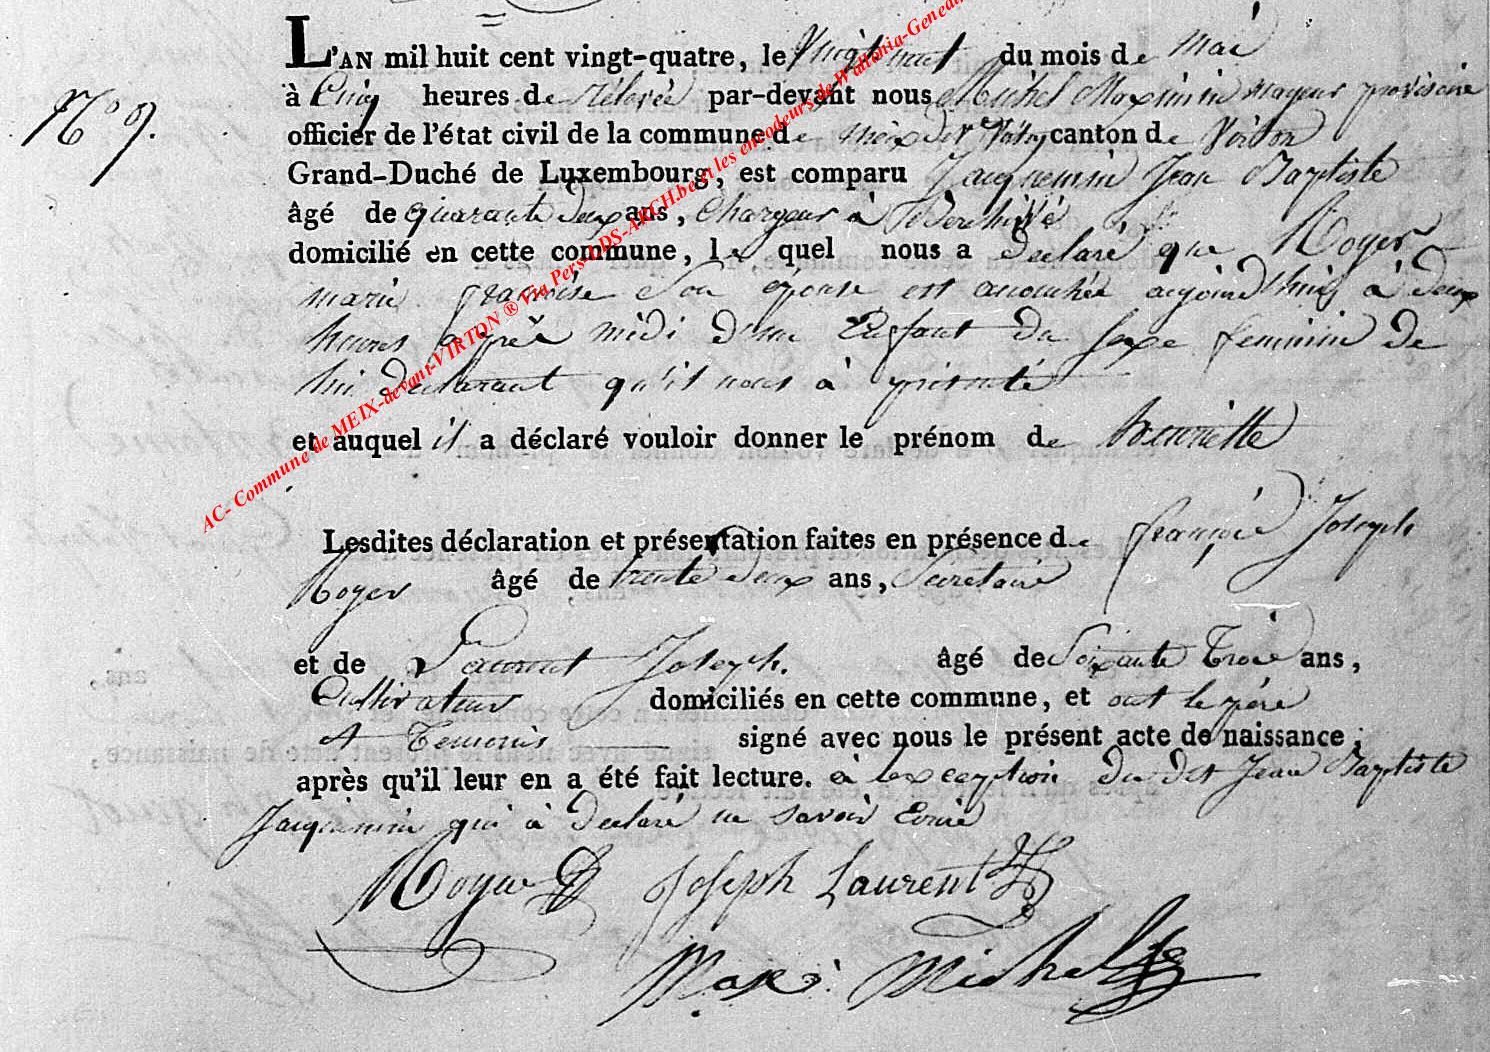 L'AN mil huit cent vingt-quatre, le vingt huit du mois de mai
à Cinq heures de rélevée par-devant nous Michel Maximin mayeur provisoire
N° 9.
officier de l'état civil de la commune de meix devt Virton canton de Virton
Grand-Duché de Luxembourg, est comparu Jacquemin Jean Baptiste
âgé de quarante deux ans, Chargeur à
domicilié en cette commune, le quel nous a declaré que Royer
marie françoise Son épouse est accouchée aujourd'huy à deux
heures aprés midi d'un Enfant du sexe feminin de
lui declarant qu'il nous à présenté
et auquel il a déclaré vouloir donner le prénom de henriette
Lesdites déclaration et présentation faites en présence de françois Joseph
Royer âgé de trente deux ans, Secretaire
et de Laurent Joseph. âgé de Soixante Trois ans,
Cultivateur domiciliés en cette commune, et ont le père
et Temoins signé avec nous le présent acte de naissance,
après qu'il leur en a été fait lecture. à lexception du dit Jean Baptiste
Jacquemin qui à declaré ne savoir Ecrire
Royer Joseph Laurent
Max. Michel
AC- Commune de MEIX-devant-VIRTON ® Via Pers-LDS-ARCH.be et les encodeurs de Wallonia-Geneal